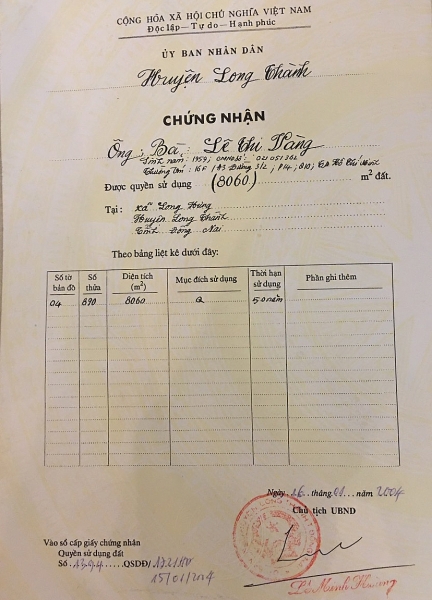 CỘNG HÒA XÃ HỘI CHỦ NGHĨA VIỆT NAM
Độc lập — Tự do — Hạnh phúc
ỦY BAN NHÂN DÂN
Huyện Long Thành
CHỨNG NHẬN
Ông; Bà: Lê Thị Vàng
Sinh năm: 1959; CMND số: 021051306
Thường trú: 16F / 3 Đường 3/2, P14, Q10, TP Hồ Chí Minh
Được quyền sử dụng (8060) m² đất.
Tại: xã Long Hưng
Huyện Long Thành
Tỉnh Đồng Nai
Theo bảng liệt kê dưới đây:
Số tờ bản đồ Số thửa Diện tích (m²) Mục đích sử dụng Thời hạn sử dụng Phần ghi thêm
04 890 8060 Q 50 năm
Ngày 16 tháng 01 năm 2004
Chủ tịch UBND
Vào sổ cấp giấy chứng nhận
Quyền sử dụng đất
Số QSDĐ/
15/01/2004
Lê Minh Hoàng